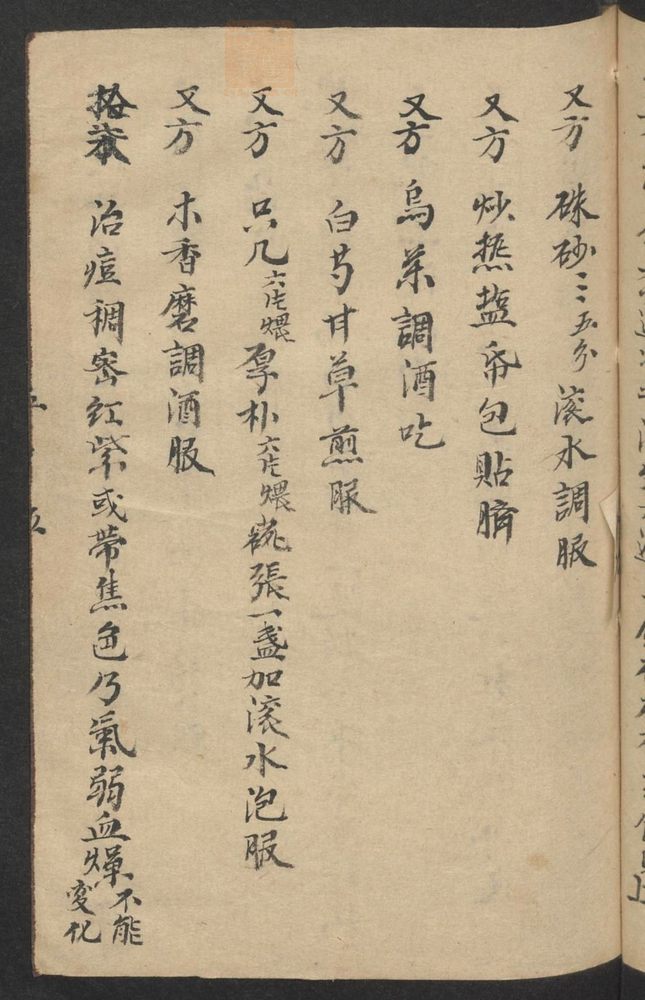 又方 硃砂三五分滾水調服
又方 炒𤍠塩帋包貼臍
又方 烏茶調酒吃
又方 白芍甘草煎服
又方 只几六片煨厚朴六片煨 張一盞加滾水泡服
又方 木香磨調酒服
拾柒 治痘稠密紅紫或帶焦色乃氣弱血燥不能變化